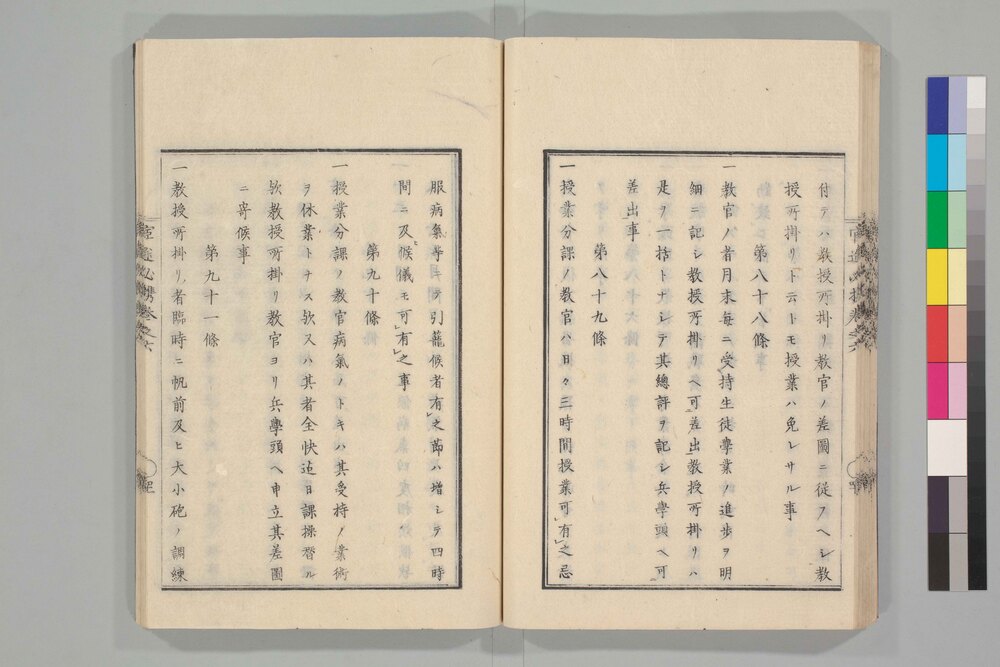 付テハ教授所掛リ教官ノ差圖ニ從フヘシ教
授所掛リト云トモ授業ハ免レサル事
第八十八條
一教官ノ者月末毎ニ受持生徒學業ノ進歩ヲ明
細ニ記シ教授所掛リヘ可差出教授所掛リハ
是ヲ一括トナシテ其總評ヲ記シ兵學頭ヘ可
差出事
第八十九條
一授業分課ノ教官ハ日々三時間授業可有之忌
服病氣等ニテ引籠候者有之節ハ増シテ四時
間ニ及候儀モ可有之事
第九十條
一授業分課ノ教官病氣ノトキハ其受持ノ業術
ヲ休業トナス欤又ハ其者全快迠日課操替ル
欤教授所掛リ教官ヨリ兵學頭ヘ申立其差圖
ニ寄候事
第九十一條
一教授所掛リノ者臨時ニ帆前及ヒ大小砲ノ調練